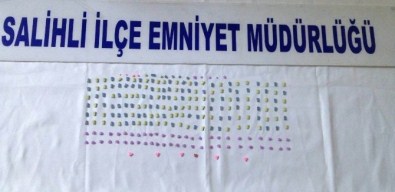 SALİHLİ İLÇE EMNİYET MÜDÜRLÜĞÜ